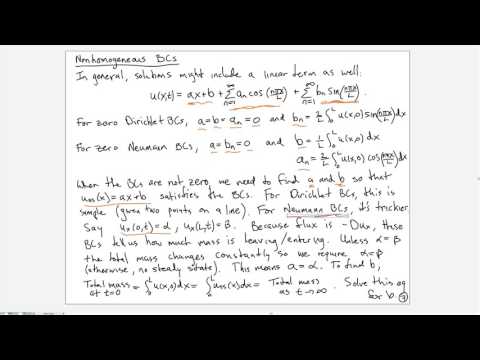 Nonhomogeneous BCs
In general, solutions might include a linear term as well:
u(x,t) = ax+b + Σ_{n=1}^{∞} a_n cos(nπx/L) + Σ_{n=1}^{∞} b_n sin(nπx/L).
For zero Dirichlet BCs, a=b=a_n=0 and b_n = 2/L ∫_0^L u(x,0) sin(nπx/L)dx
For zero Neumann BCs, a=b_n=0 and b = 1/L ∫_0^L u(x,0) dx
a_n = 2/L ∫_0^L u(x,0) cos(nπx/L)dx
When the BCs are not zero, we need to find a and b so that
u_ss(x)=ax+b satisfies the BCs. For Dirichlet BCs, this is
simple (given two points on a line). For Neumann BCs, it's trickier.
Say u_x(0,t)=α, u_x(L,t)=β. Because flux is -Du_x, these
BCs tell us how much mass is leaving/entering. Unless α=β
the total mass changes constantly so we require α=β
(otherwise, no steady state). This means a=α. To find b,
Total mass at t=0 = ∫_0^L u(x,0)dx = ∫_0^L u_ss(x)dx = Total mass as t→∞. Solve this eq
for b